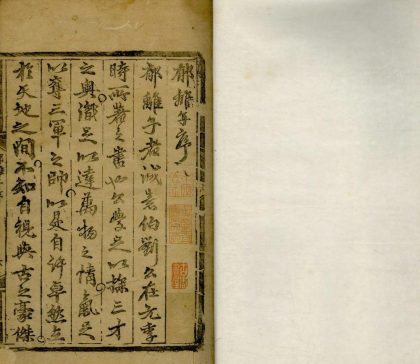 郁離子序
郁離子者誠意伯劉公在元季
時所著之書也公學足以探三才
之奧識足以達萬物之情氣足
以奪三軍之師以是自許卓然立
於天地之間不知自視與古之豪傑